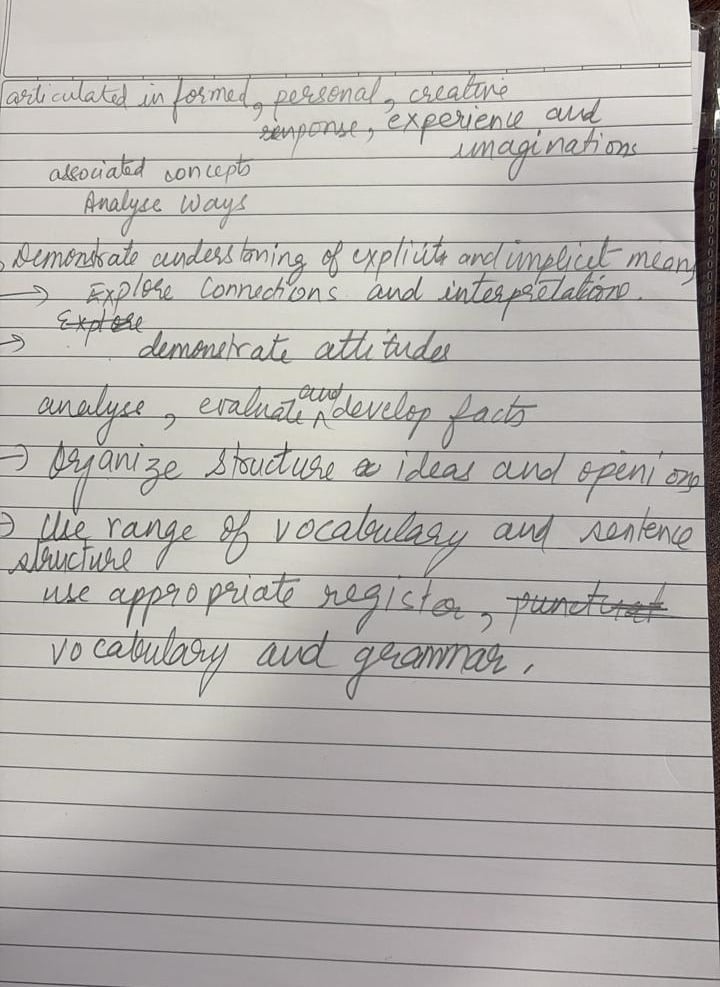 articulated in formed, personal, creative
response, experience and
imaginations
associated concepts
Analyse Ways
Demonstrate understoning of explicit and implicit means
→ Explore Connections and interpretations.
Explore
→ demonstrate attitudes
analyse, evaluate and develop facts
→ Organize structure ideas and openions
→ Use range of vocabulary and sentence
structure
use appropriate register, punctuat
vocabulary and grammar.